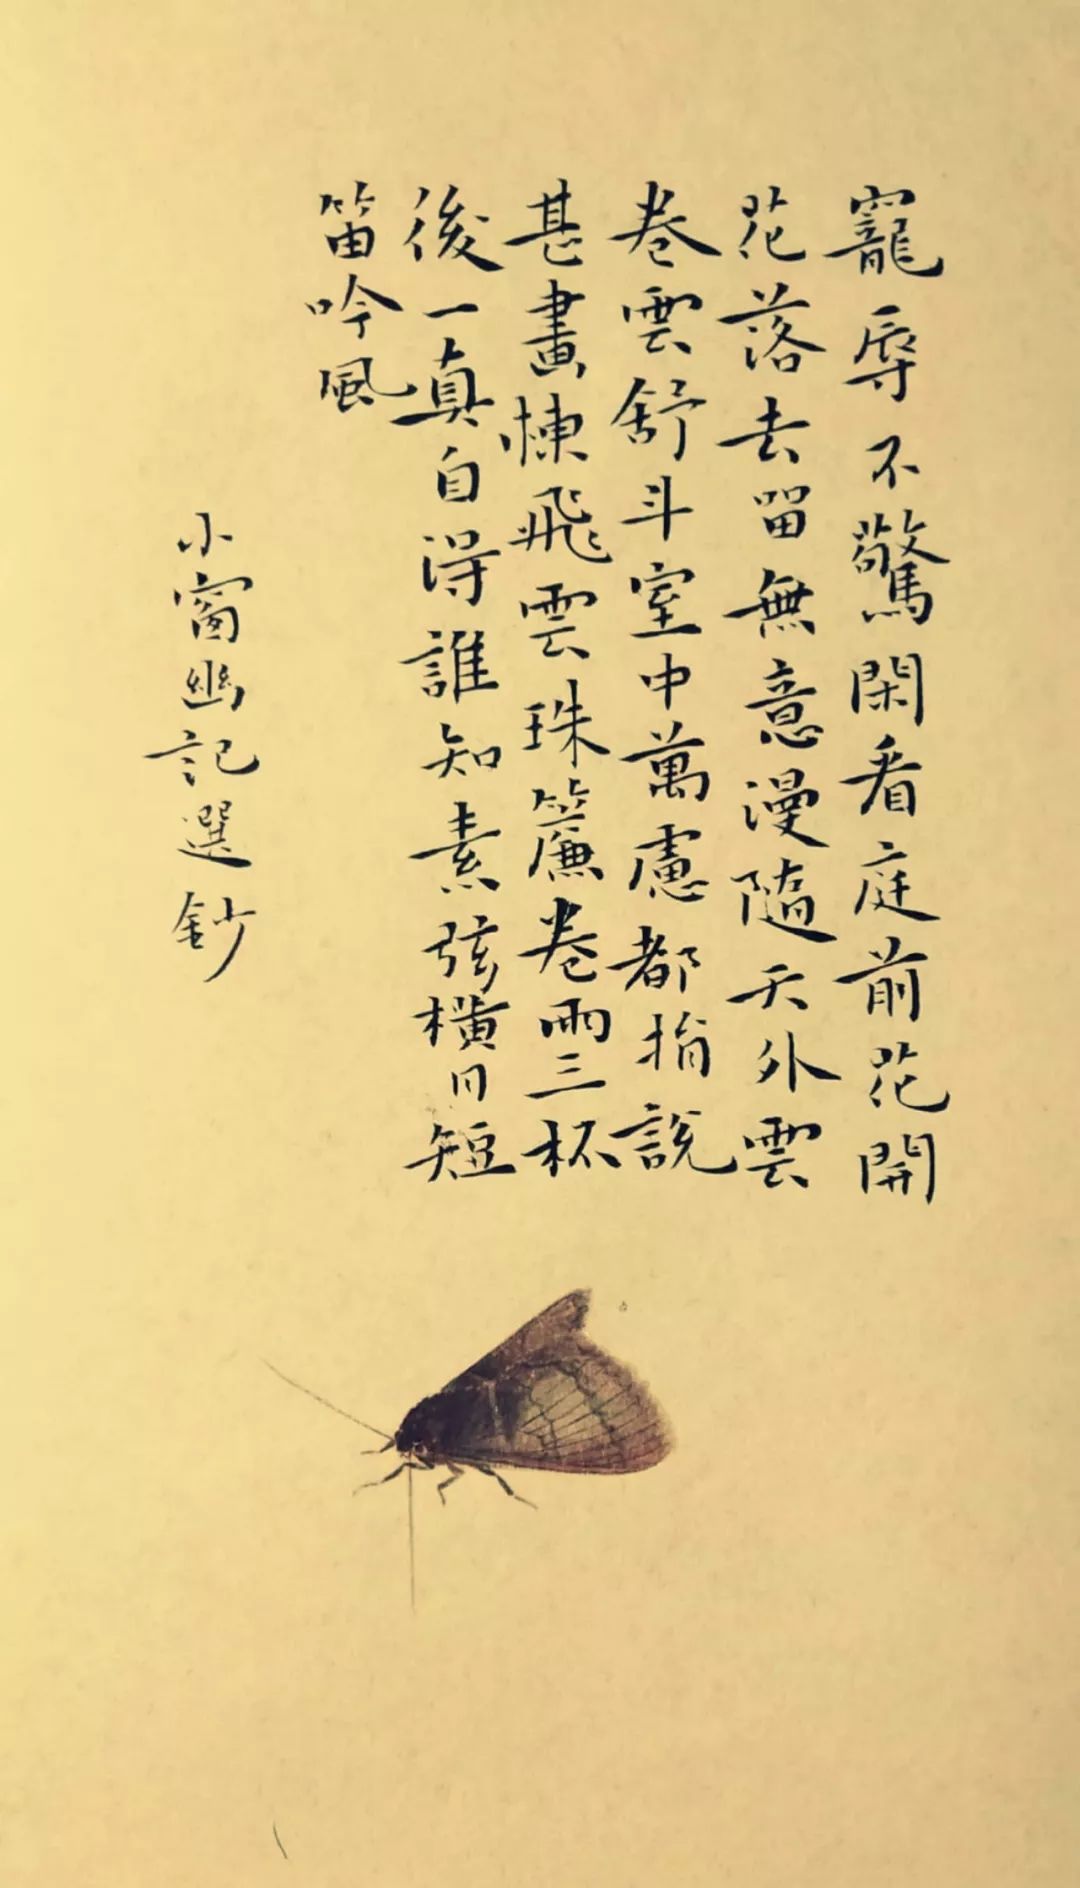 寵辱不驚閑看庭前花開
花落去留無意漫隨天外雲
卷雲舒斗室中萬慮都捐說
甚畫棟飛雲珠簾卷雨三杯
後一真自得誰知素弦橫月短
笛吟風
小窗幽記選鈔